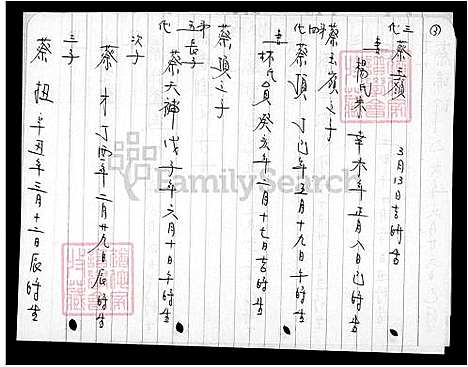 ③
三代 蔡玉嶺 3月13日吉時生
妻 楊氏朱 辛未年正月八日巳時生
蔡玉嶺之子
第四代 蔡頂 丁巳年五月十九日午時生
妻 林氏員 癸亥年二月十七日吉時生
蔡頂之子
第五代 長子 蔡天神 戊子年六月十日午時生
次子 蔡才 丁酉年二月廿九日辰時生
三子 蔡扭 辛丑年三月十三日辰時生
FamilySearch